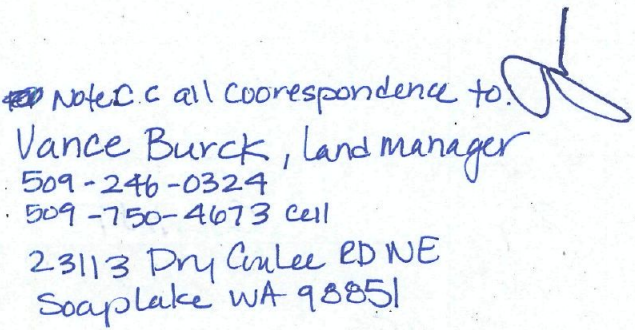 Note C.C all Coorespondence to.
Vance Burck, Land manager
509-246-0324
509-750-4673 cell
23113 Dry Coulee RD NE
Soaplake WA 98851